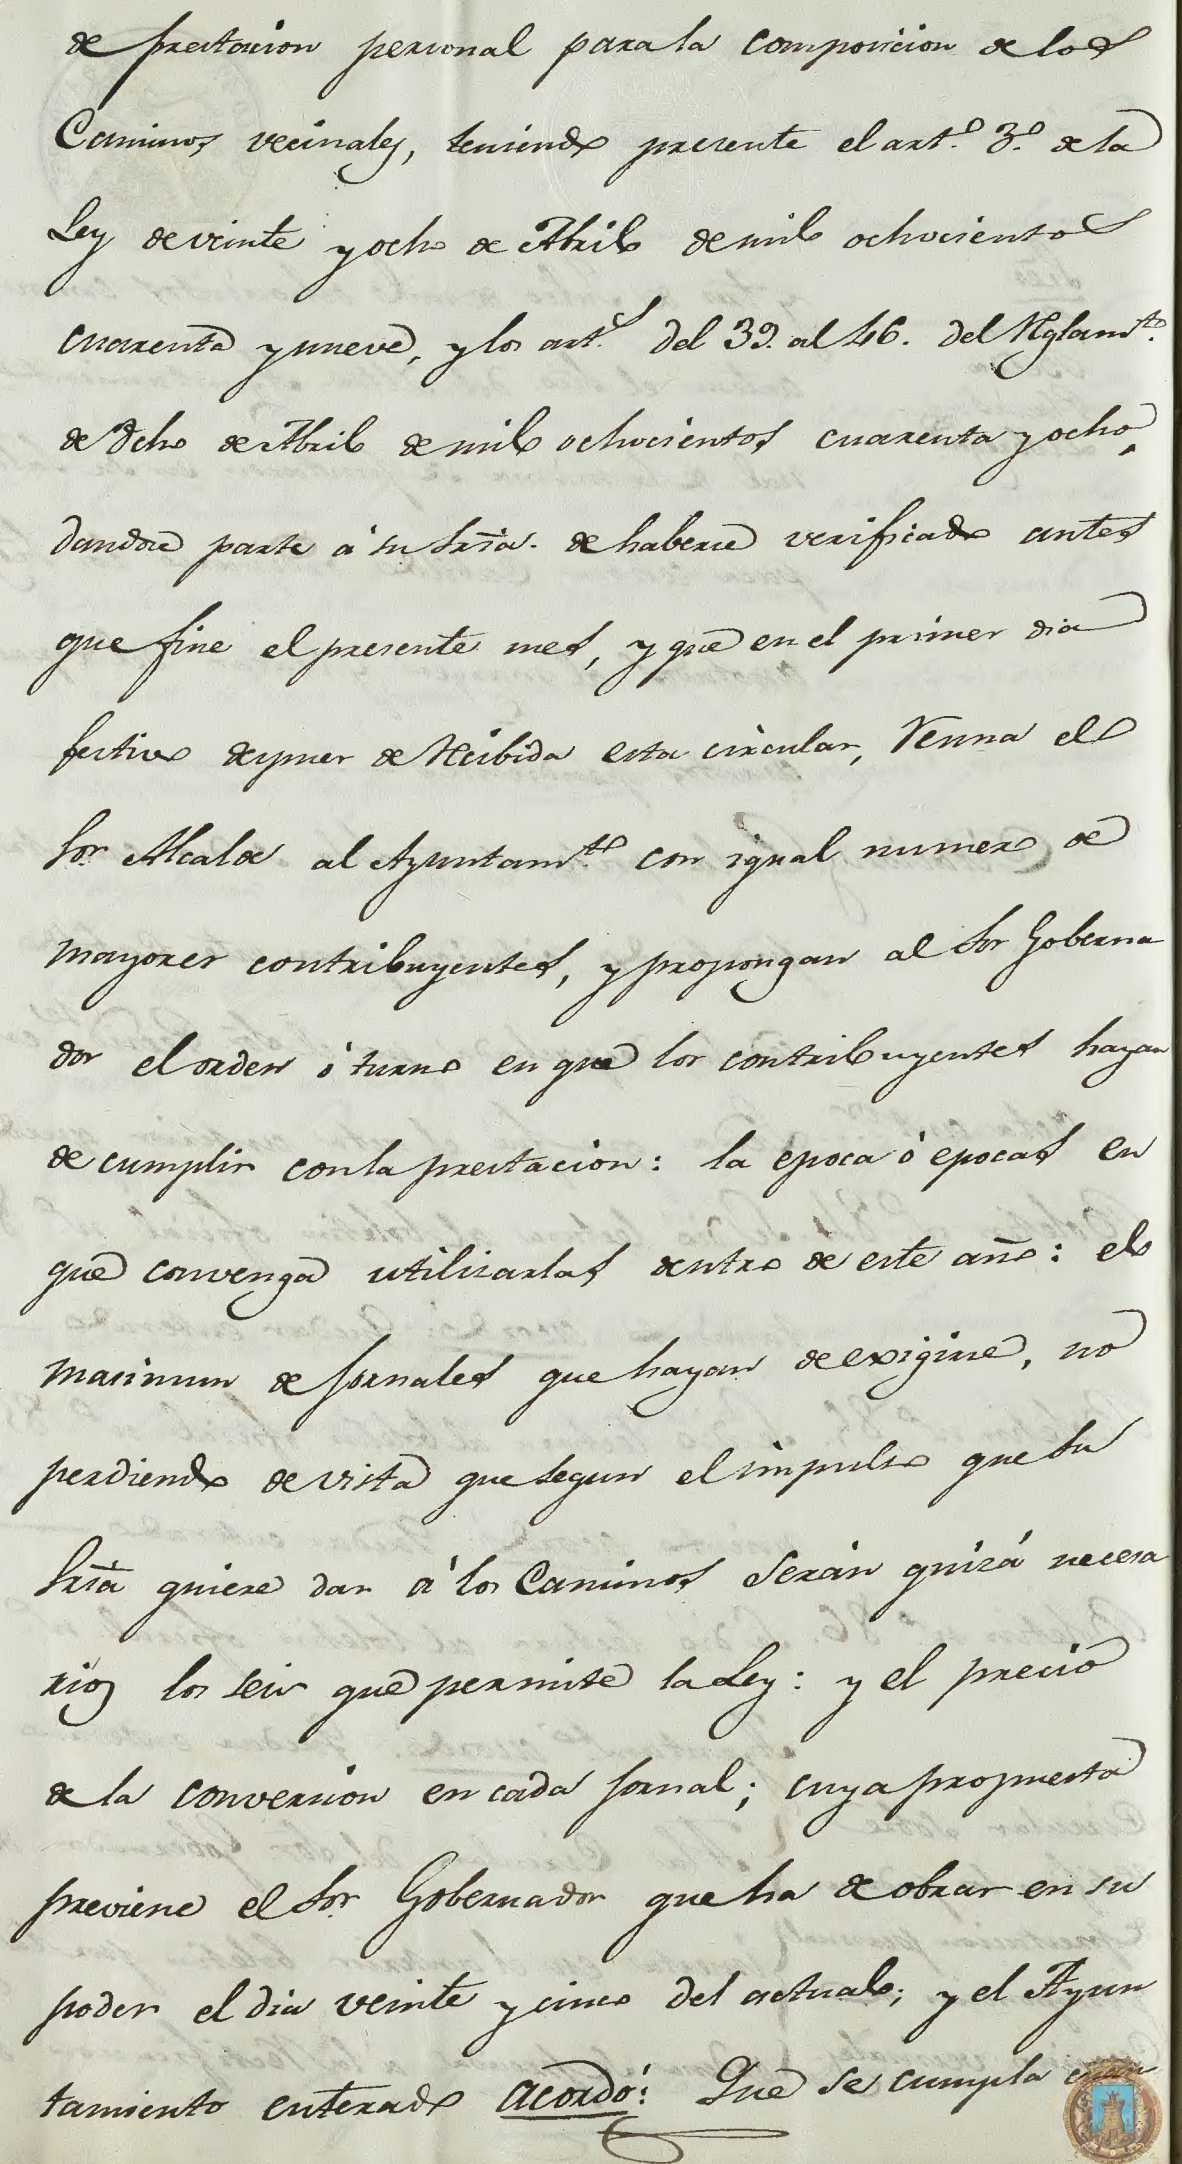 de prestacion personal para la composicion de los
Caminos vecinales, teniendo presente el art.º 3.º de la
Ley de veinte y ocho de Abril de mil ochocientos
cuarenta y nueve, y los art.s del 39. al 46. del Reglam.to
de ocho de Abril de mil ochocientos cuarenta y ocho,
dandose parte á su Sria. de haberse verificado antes
que fine el presente mes, y que en el primer dia
festivo despues de Recibida esta circular, Reuna el
Sor. Alcalde al Ayuntam.to con igual numero de
mayores contribuyentes, y propongan al Sor Goberna
dor el orden ó turno en que los contribuyentes hayan
de cumplir con la prestacion: la epoca ó epocas en
que convenga utilizarlas dentro de este año: el
maximun de Jornales que hayan de exigirse, no
perdiendo de vista que segun el impulso que Su
Sria quiere dar á los Caminos Serán quizá necesa
rios los seis que permite la Ley: y el precio
de la conversion en cada Jornal; cuya propuesta
previene el Sor. Gobernador que ha de obrar en su
poder el dia veinte y cinco del actual; y el Ayun
tamiento enterado acordó: Que se cumpla cuan